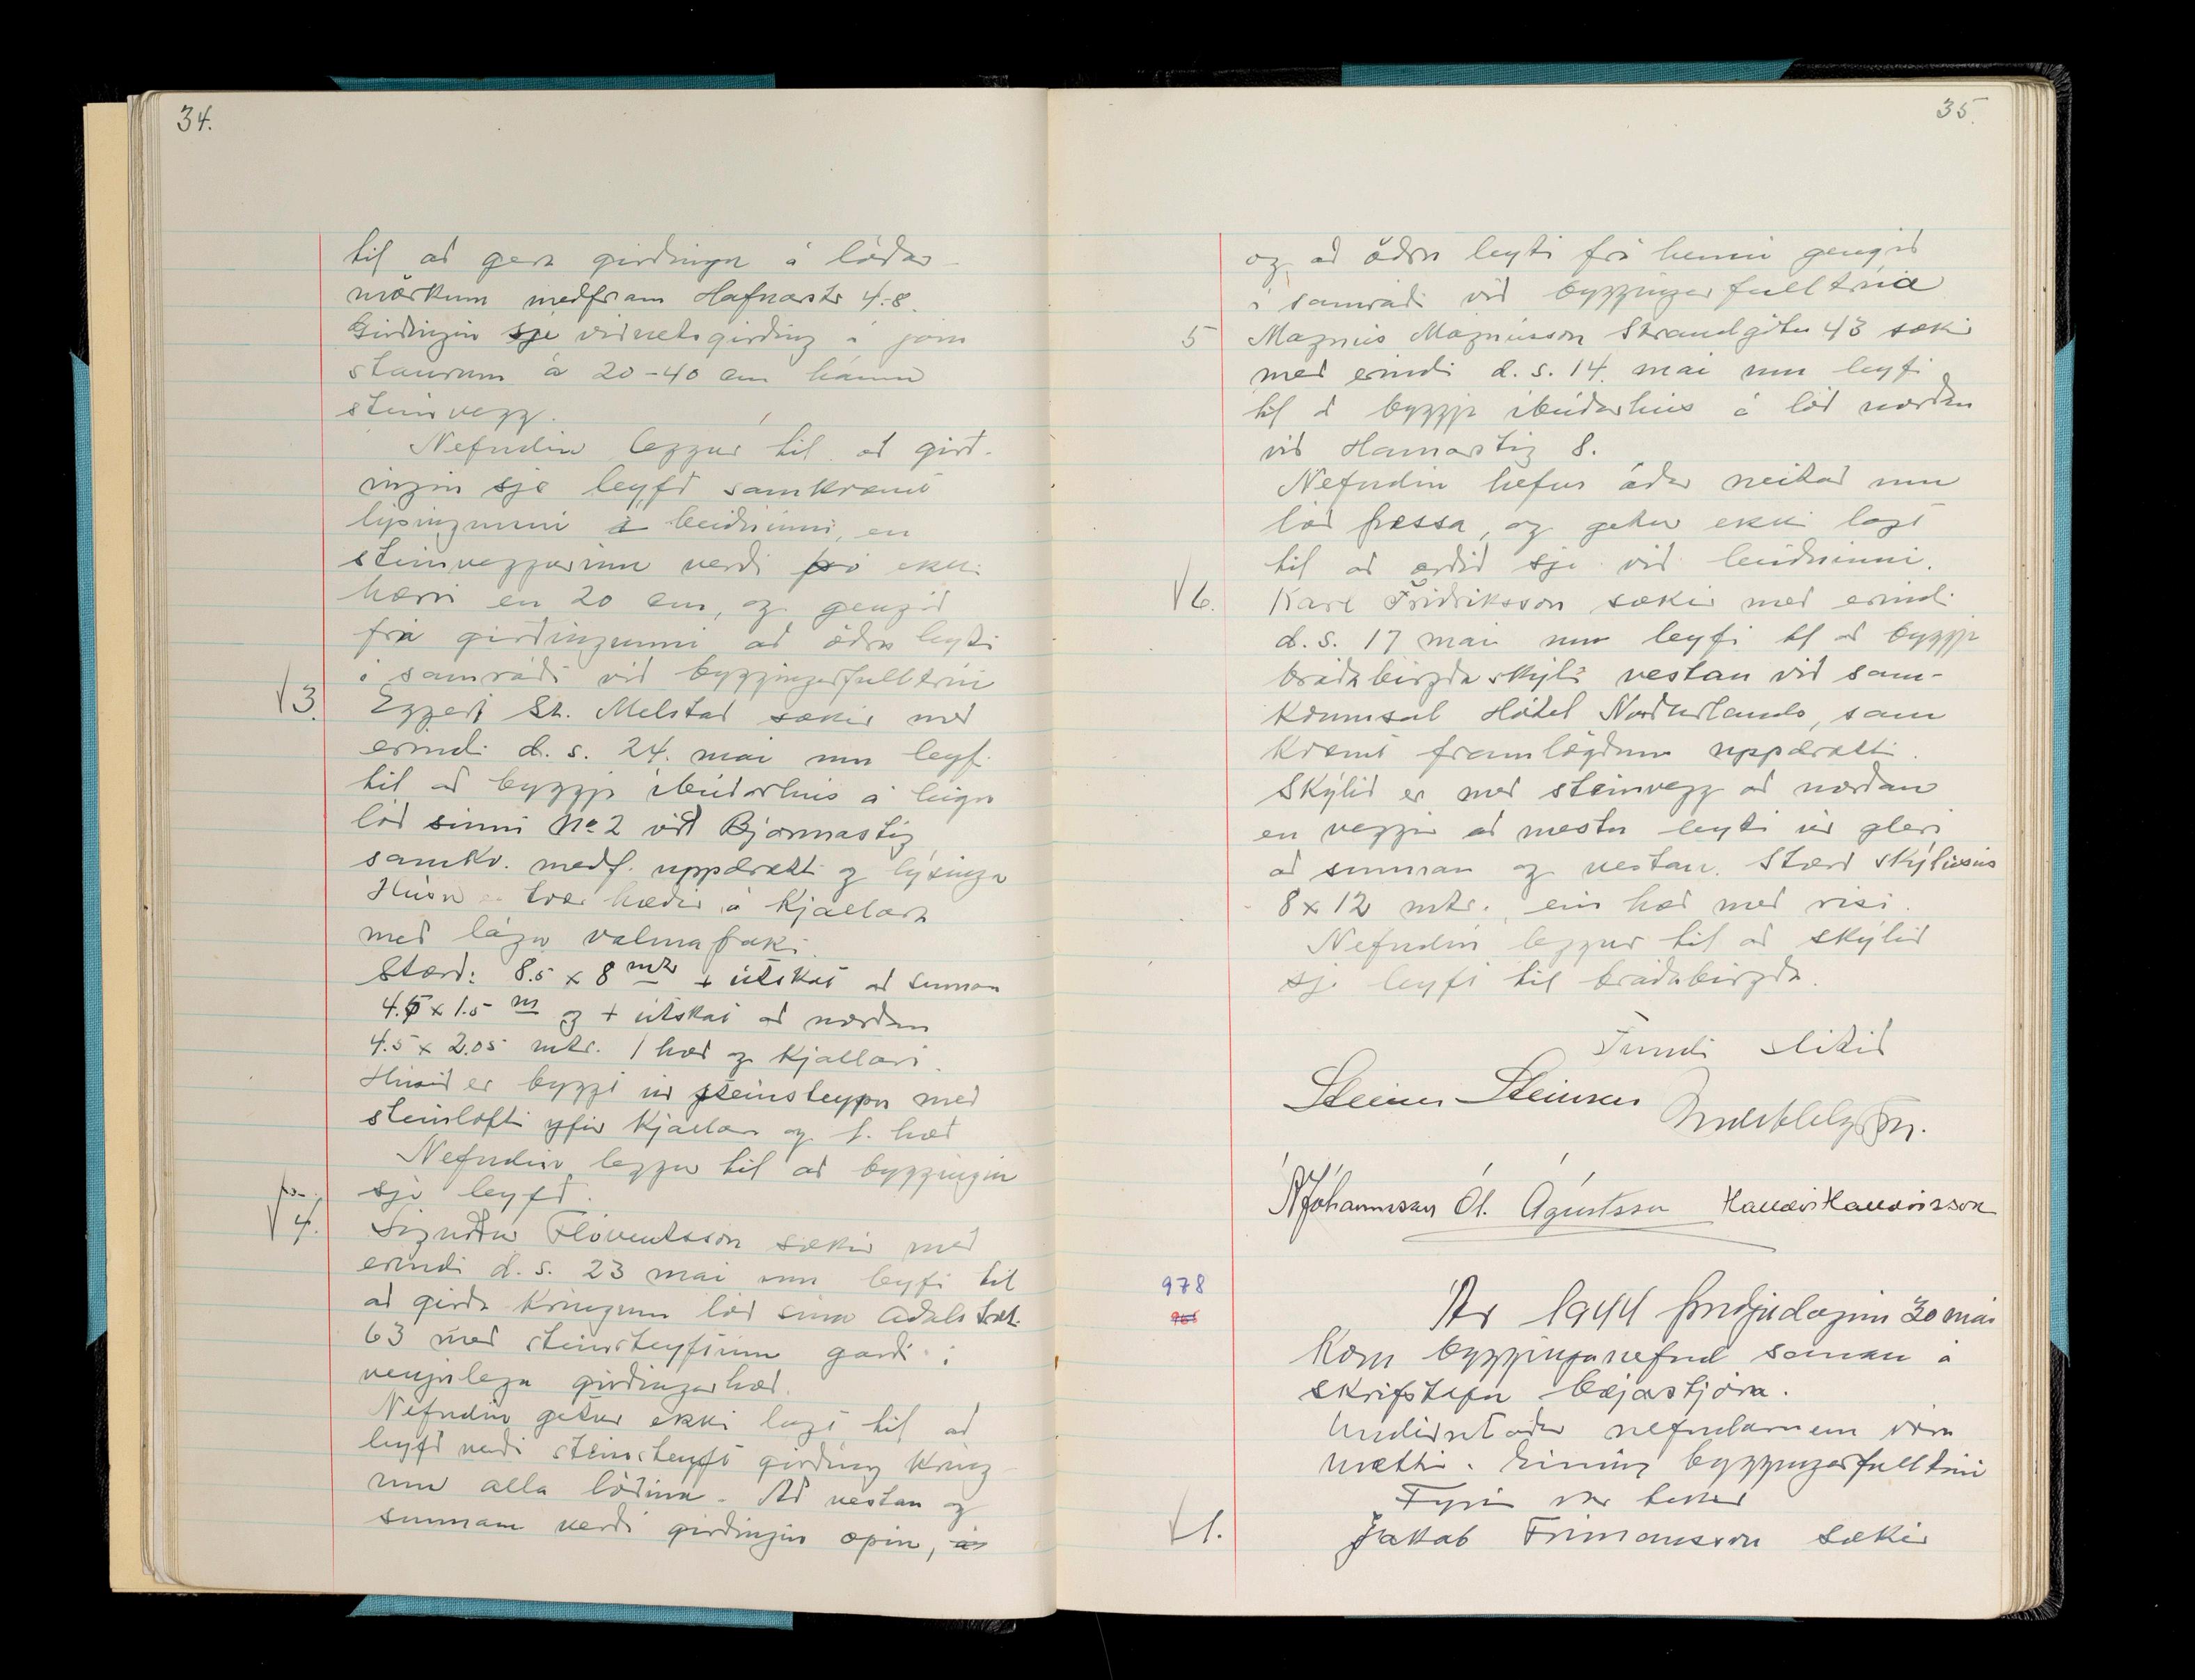 34.
til að gera girðingu á lóðar-
mörkum meðfram Hafnarstr 4-8.
Girðingin sje vírnetsgirðing á járn
staurum á 20-40 cm háum
steinvegg.
Nefndin leggur til að girð-
ingin sje leyfð samkvæmt
lýsingunni í beiðninni, en
steinveggurinn verði þó ekki
hærri en 20 cm, og gengið
frá girðingunni að öðru leyti
í samráði við byggingarfulltrúa
√ 3. Eggert St. Melstað sækir með
erindi d. s. 24. maí um leyfi
til að byggja íbúðarhús á leigu
lóð sinni No 2 við Bjarmastíg
samkv. meðf. uppdrætti og lýsingu
Húsið er tvær hæðir á kjallara
með lágu valmaþaki.
Stærð: 8.5 x 8 mtr + útskot að sunnan
4.5 x 1.5 m og + útskot að norðan
4.5 x 2.05 mtr. 1 hæð og kjallari.
Húsið er byggt úr steinsteypu með
steinlofti yfir kjallara og 1. hæð
Nefndin leggur til að byggingin
sje leyfð.
√ 4. Sigurður Flóventsson sækir með
erindi d. s. 23 maí um leyfi til
að girða kringum lóð sína Aðalstr.
63 með steinsteyptum garði í
venjulega girðingarhæð.
Nefndin getur ekki lagt til að
leyfð verði steinsteypt girðing kring
um alla lóðina. Að vestan og
sunnan verði girðingin opin,
35.
og að öðru leyti frá henni gengið
í samráði við byggingarfulltrúa
5 Magnús Magnússon Strandgötu 43 sækir
með erindi d. s. 14. maí um leyfi
til að byggja íbúðarhús á lóð norðan
við Hamarstíg 8.
Nefndin hefur áður neitað um
lóð þessa, og getur ekki lagt
til að orðið sje við beiðninni.
√ 6. Karl Friðriksson sækir með erindi
d. s. 17 maí um leyfi til að byggja
bráðabirgðaskýli vestan við sam-
komusal Hótel Norðurlands, sam
kvæmt framlögðum uppdrætti.
Skýlið er með steinvegg að norðan
en veggir að mestu leyti úr gleri
að sunnan og vestan. Stærð skýlisins
8 x 12 mtr. ein hæð með risi.
Nefndin leggur til að skýlið
sje leyft til bráðabirgða.
Fundi slitið
Steinn Steinsen
Jóhannsson Ól. Ágústsson Halldór Halldórsson
978
Ár 1944 þriðjudaginn 30 maí
kom bygginganefnd saman á
skrifstofu bæjarstjóra.
Undirritaðir nefndarmenn voru
mættir. Einnig byggingarfulltrúi
Fyrir var tekið
√ 1. Jakob Frímannsson sækir